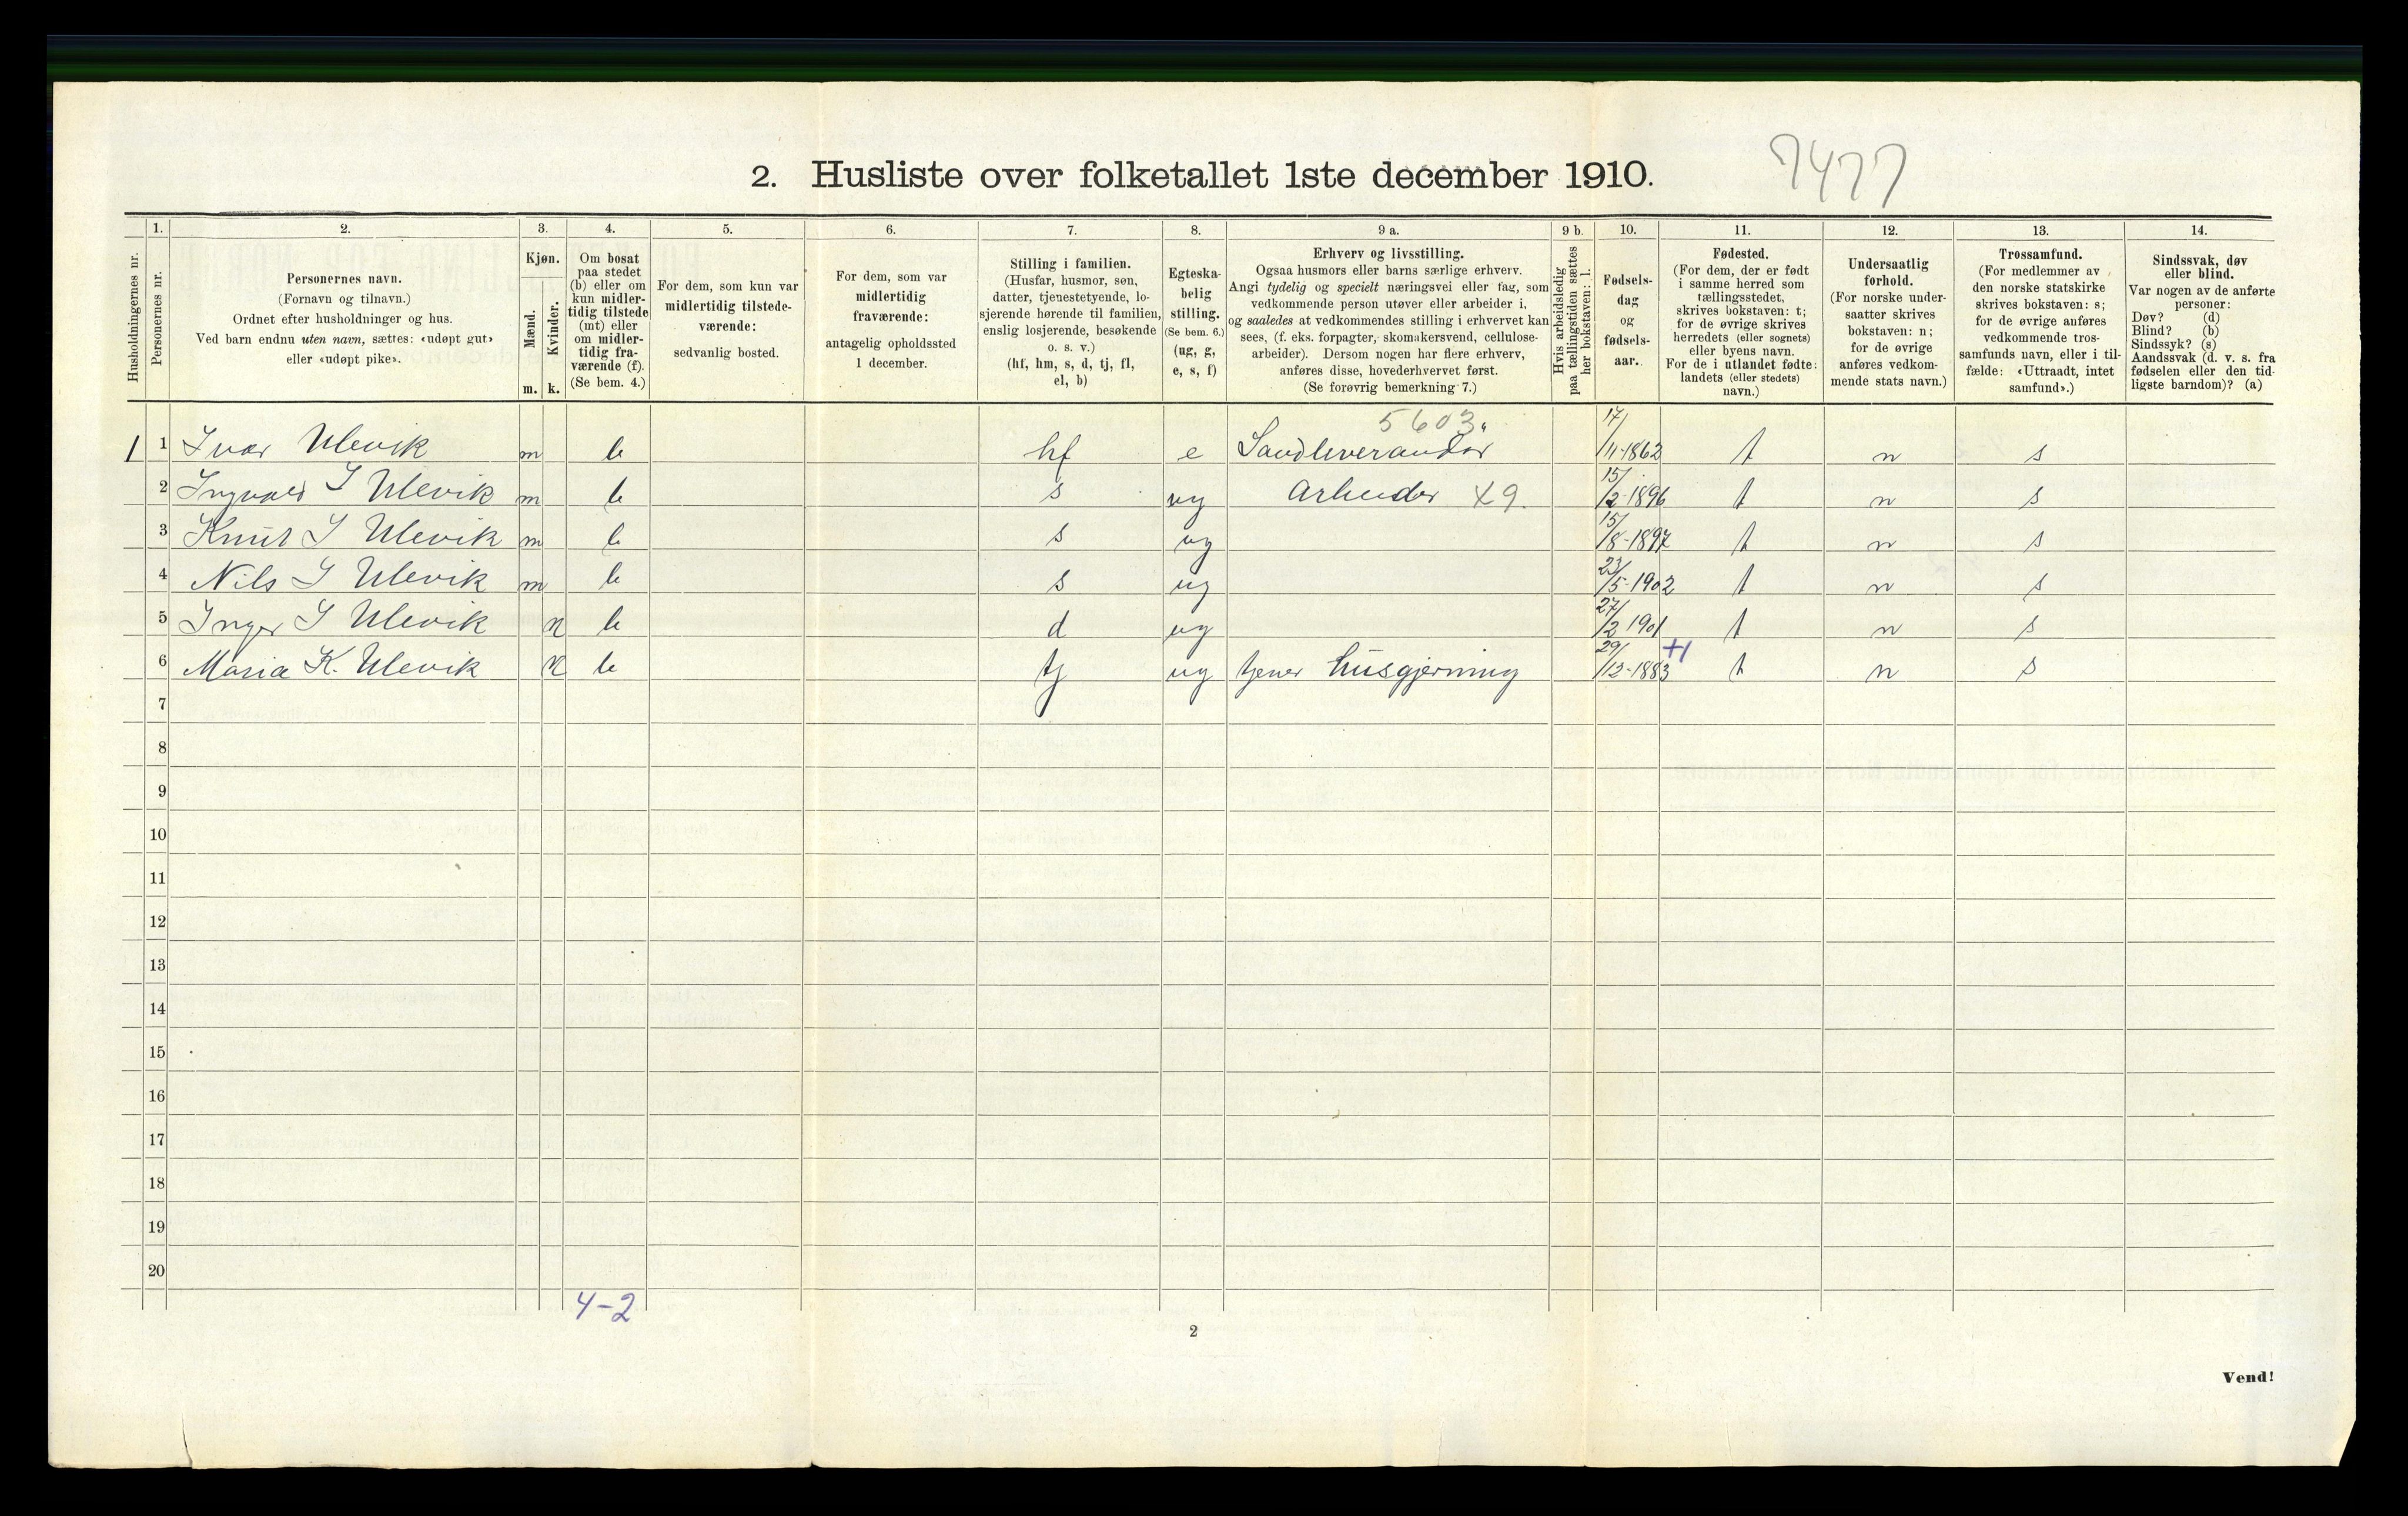 2. Husliste over folketallet 1ste december 1910. 7477
Husholdningernes nr.
1. Personernes nr.
2. Personernes navn.
(Fornavn og tilnavn.)
Ordnet efter husholdninger og hus.
Ved barn endnu uten navn, sættes: «udøpt gut»
eller «udøpt pike».
3. Kjøn.
Mænd. m.
Kvinder. k.
4. Om bosat
paa stedet
(b) eller om
kun midler-
tidig tilstede
(mt) eller
om midler-
tidig fra-
værende (f).
(Se bem. 4.)
5. For dem, som kun var
midlertidig tilstede-
værende:
sedvanlig bosted.
6. For dem, som var
midlertidig
fraværende:
antagelig opholdssted
1 december.
7. Stilling i familien.
(Husfar, husmor, søn,
datter, tjenestetyende, lo-
sjerende hørende til familien,
enslig losjerende, besøkende
o. s. v.)
(hf, hm, s, d, tj, fl,
el, b)
8. Egteska-
belig
stilling.
(Se bem. 6.)
(ug, g,
e, s, f)
9 a. Erhverv og livsstilling.
Ogsaa husmors eller barns særlige erhverv.
Angi tydelig og specielt næringsvei eller fag, som
vedkommende person utøver eller arbeider i,
og saaledes at vedkommendes stilling i erhvervet kan
sees, (f. eks. forpagter, skomakersvend, cellulose-
arbeider). Dersom nogen har flere erhverv,
anføres disse, hovederhvervet først.
(Se forøvrig bemerkning 7.)
9 b. Hvis arbeidsledig
paa tællingstiden sættes
her bokstaven: l.
10. Fødsels-
dag
og
fødsels-
aar.
11. Fødested.
(For dem, der er født
i samme herred som
tællingsstedet,
skrives bokstaven: t;
for de øvrige skrives
herredets (eller sognets)
eller byens navn.
For de i utlandet fødte:
landets (eller stedets)
navn.)
12. Undersaatlig
forhold.
(For norske under-
saatter skrives
bokstaven: n;
for de øvrige
anføres vedkom-
mende stats navn.)
13. Trossamfund.
(For medlemmer av
den norske statskirke
skrives bokstaven: s;
for de øvrige anføres
vedkommende tros-
samfunds navn, eller i til-
fælde: «Uttraadt, intet
samfund».)
14. Sindssvak, døv
eller blind.
Var nogen av de anførte
personer:
Døv? (d)
Blind? (b)
Sindssyk? (s)
Aandssvak (d. v. s. fra
fødselen eller den tid-
ligste barndom)? (a)
5603
1 1 Ivar Ulevik m b hf e Sandleverandør 17/11-1862 t n s
2 Ingvald I Ulevik m b s ug Arbeider X9. 15/2-1896 t n s
3 Knut I Ulevik m b s ug 15/8-1897 t n s
4 Nils I Ulevik m b s ug 23/5-1902 t n s
5 Inger I Ulevik k b d ug 27/2 1901 t n s
6 Maria K. Ulevik k b tj ug tjener husgjerning 29/12-1883 +1 t n s
7
8
9
10
11
12
13
14
15
16
17
18
19
20
4-2
2
Vend!